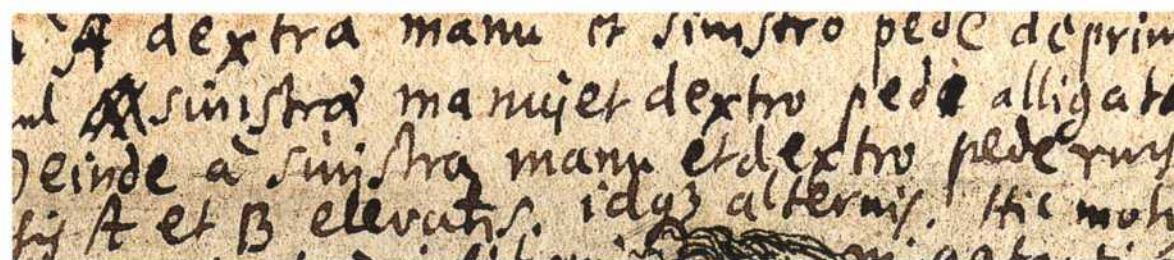 A dextra manu et sinistro pede deprim
sinistra manu, et dextro pede alligat
Deinde a sinistra manu et dextro pede rurs
A et B elevatis. idq3 alternis. Hic mot